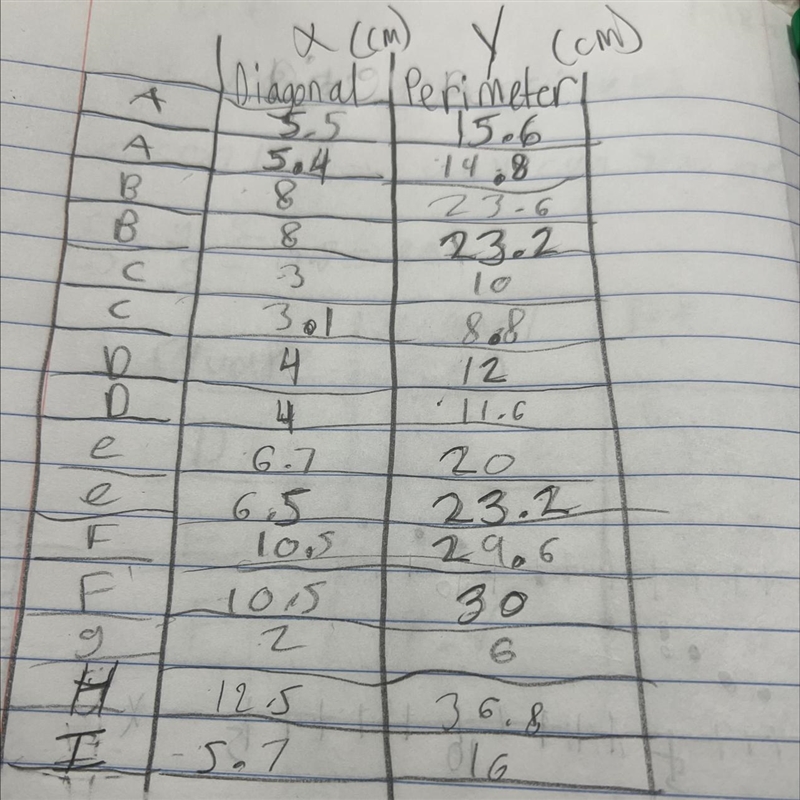 x (cm) y (cm)
A Diagonal Perimeter
A 5.5 15.6
B 5.4 14.8
B 8 23.6
C 8 23.2
C 3 10
D 3.1 8.8
D 4 12
e 4 11.6
e 6.7 20
F 6.5 23.2
F 10.5 29.6
g 10.5 30
H 2 6
I 12.5 36.8
5.7 16